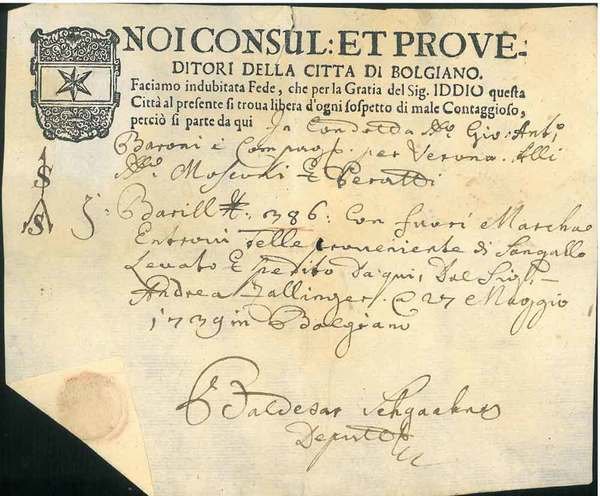 NOI CONSUL: ET PROVE-
DITORI DELLA CITTA DI BOLGIANO.
Faciamo indubitata Fede, che per la Gratia del Sig. IDDIO questa
Città al presente si troua libera d'ogni sospetto di male Contaggioso,
perciò si parte da qui In Condotta Gio: Ant:
Baroni e Comp per Verona Alli
Mosconi & Peratti
S
S S
3: Barill 386: Con fuori Marcha
Entrovi Telle proveniente di Sangallo
Levato E Spedito Da qui, Dal Sig:
Andrea Zallinger @ 27 Maggio
1739 in Bolgiano
Baldesar
Deput